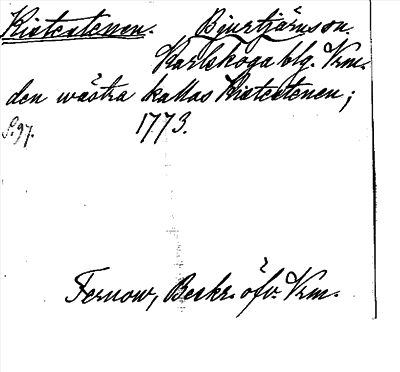 Kistestenen. Bjurtjärns sn.
Karlskoga blg. Vrm.
den wästra kallas Kistestenen;
S. 97. 1773.
Fernow, Beskr. öfv. Vrm.